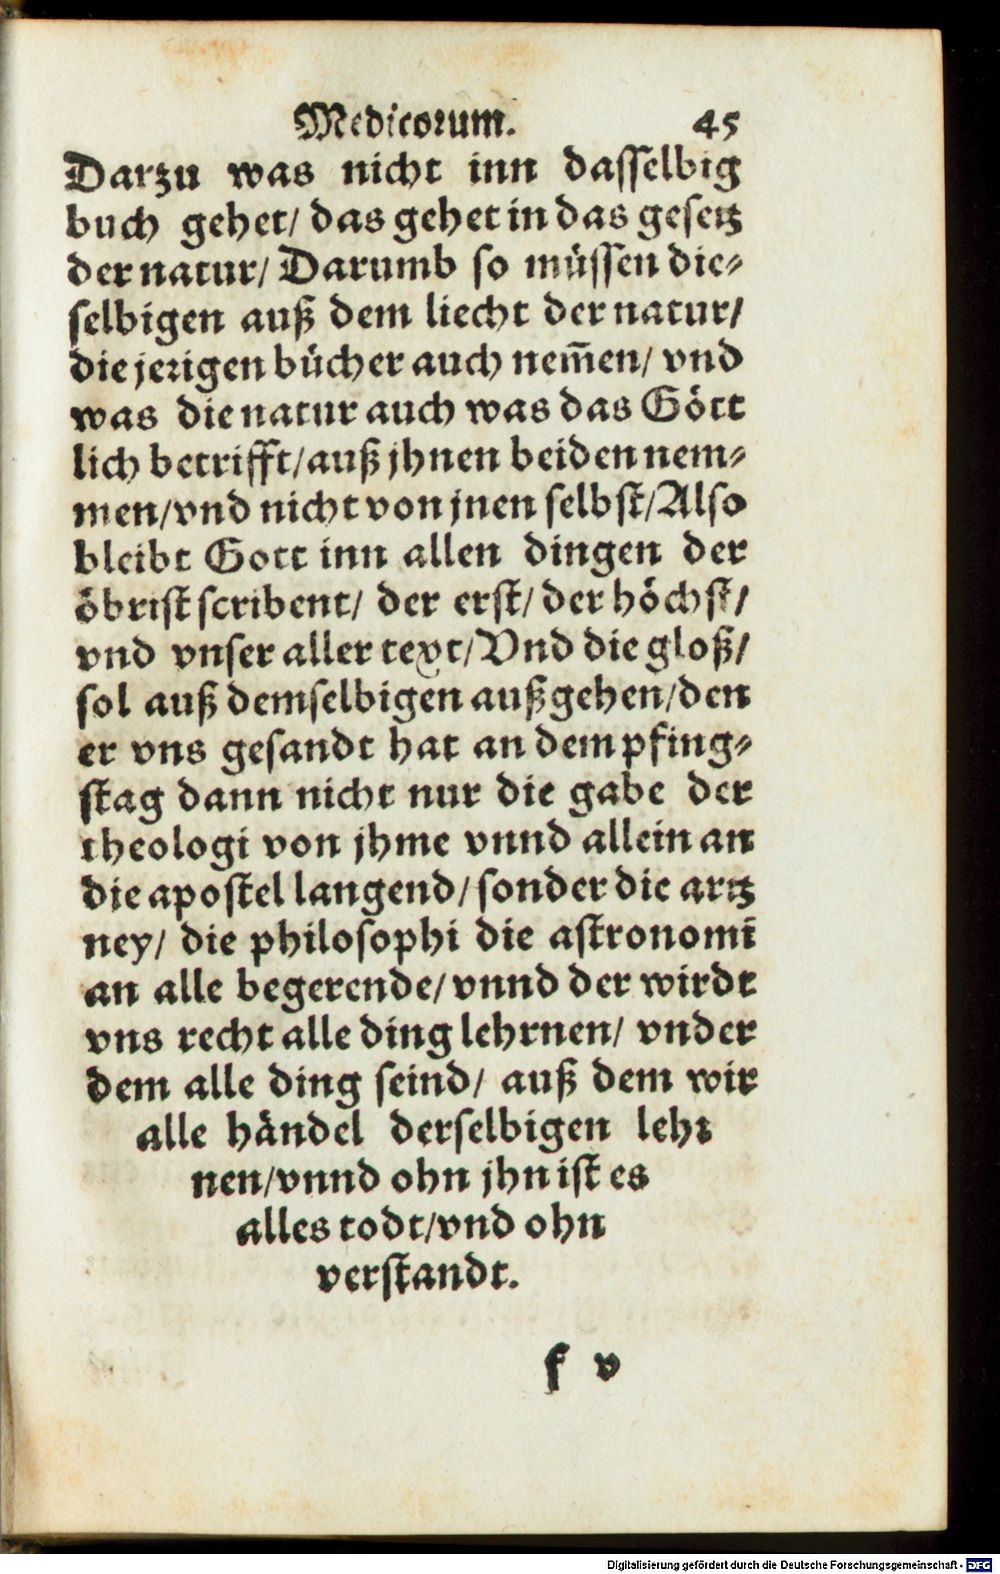 Medicorum. 45
Darzu was nicht inn dasselbig
buch gehet/ das gehet in das gesetz
der natur/ Darumb so müssen die⸗
selbigen auß dem liecht der natur/
die jerigen bücher auch nem̃en/ vnd
was die natur auch was das Gött
lich betrifft/ auß jhnen beiden nem⸗
men/ vnd nicht von jnen selbst/ Also
bleibt Gott inn allen dingen der
öbrist scribent/ der erst/ der höchst/
vnd vnser aller text/ Vnd die gloß/
sol auß demselbigen außgehen/ den
er vns gesandt hat an dem pfing⸗
stag dann nicht nur die gabe der
theologi von jhme vnnd allein an
die apostel langend/ sonder die artz
ney/ die philosophi die astronomi
an alle begerende/ vnnd der wirdt
vns recht alle ding lehrnen/ vnder
dem alle ding seind/ auß dem wir
alle händel derselbigen lehr
nen/ vnnd ohn jhn ist es
alles todt/ vnd ohn
verstandt.
f v
Digitalisierung gefördert durch die Deutsche Forschungsgemeinschaft - DFG